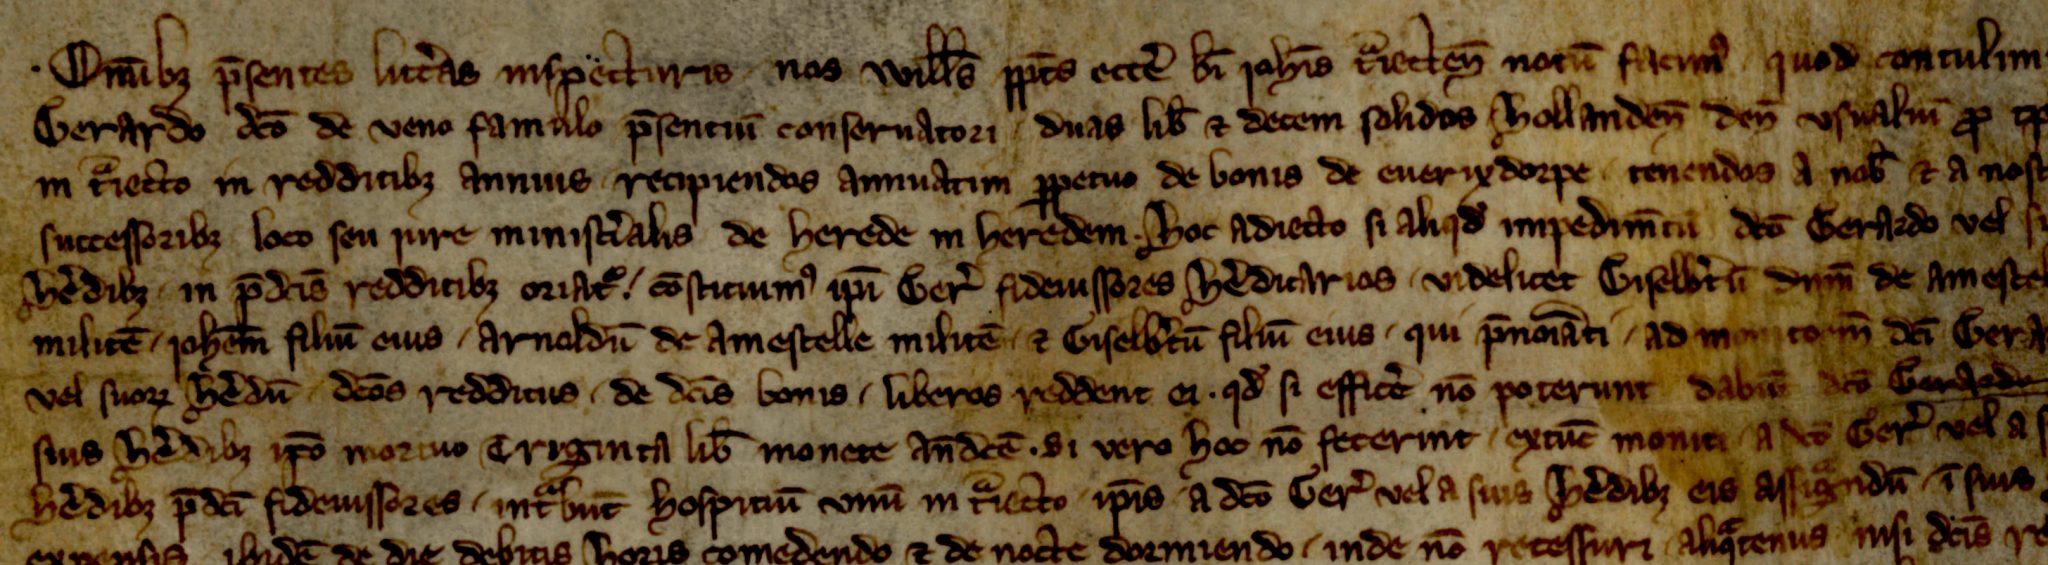 Omībꝫ p̄sentes litt̄as inspecturis nos Will̄s pp̄ts eccl̄e bī ioh̄is t̄ecten̄ notū facimꝰ quod contulim
Gerardo dc̄o de veno famulo p̄sentiū conseruatori duas lib̄ ⁊ decem solidos Hollanden̄ den̄ vsualiū ꝓ tp
in t̄ecto in redditibꝫ annuis recipiendos annuatim ꝑpetuo de bonis de euerixdorpe tenendos a nob̄ ⁊ a nost
successoribꝫ loco seu iure minist̄ialis de herede in heredem. Hoc adiecto si aliqd̄ impedim̄tū dc̄o Gerardo vel su
h̄edibꝫ in p̄dc̄is redditibꝫ oriat᷑ / cōstituimꝰ ip̄m Ger̄ fideiussores h̄editarios videlicet Giselb̄tū dn̄m de amestel
militē ioh̄em filiū eius arnoldū de amestelle militē ⁊ Giselb̄tū filiū eius qui p̄noīati ad dc̄i Gera
vel suoꝝ h̄edū dc̄os redditus de dc̄is bonis liberos reddent ei. qd̄ si effic̄e nō poterunt dabūt dc̄o Gerardo
suis h̄edibꝫ ip̄o mortuo triginta lib̄ monete an̄dc̄e. si vero hoc nō fecerint extūc moniti a dc̄o Ger̄ vel a s
h̄edibꝫ p̄dc̄i fideiussores int̄būt hospitiū vnū in t̄ecto ip̄is a dc̄o Ger̄ vel a suis h̄edibꝫ eis assignādū ī suis
expensis ibidē de die debitis horis comedendo ⁊ de nocte dormiendo inde nō recessuri aliq̄tenus nisi dc̄is re